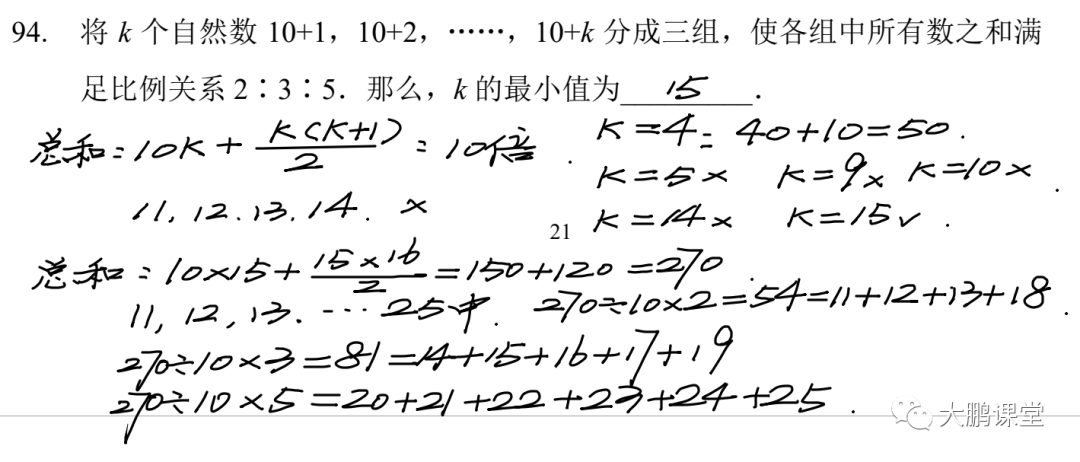 94. 将 k 个自然数 10+1，10+2，……，10+k 分成三组，使各组中所有数之和满
足比例关系 2∶3∶5．那么，k 的最小值为 15 ．
总和=10K+K(K+1)/2=10倍．
K=4= 40+10=50.
K=5× K=9× K=10×.
11, 12. 13. 14. ×
K=14× K=15✓.
21
总和=10×15+15×16/2=150+120=270.
11, 12, 13. ---25中. 270÷10×2=54=11+12+13+18.
270÷10×3=81=14+15+16+17+19
270÷10×5=20+21+22+23+24+25.
大鹏课堂